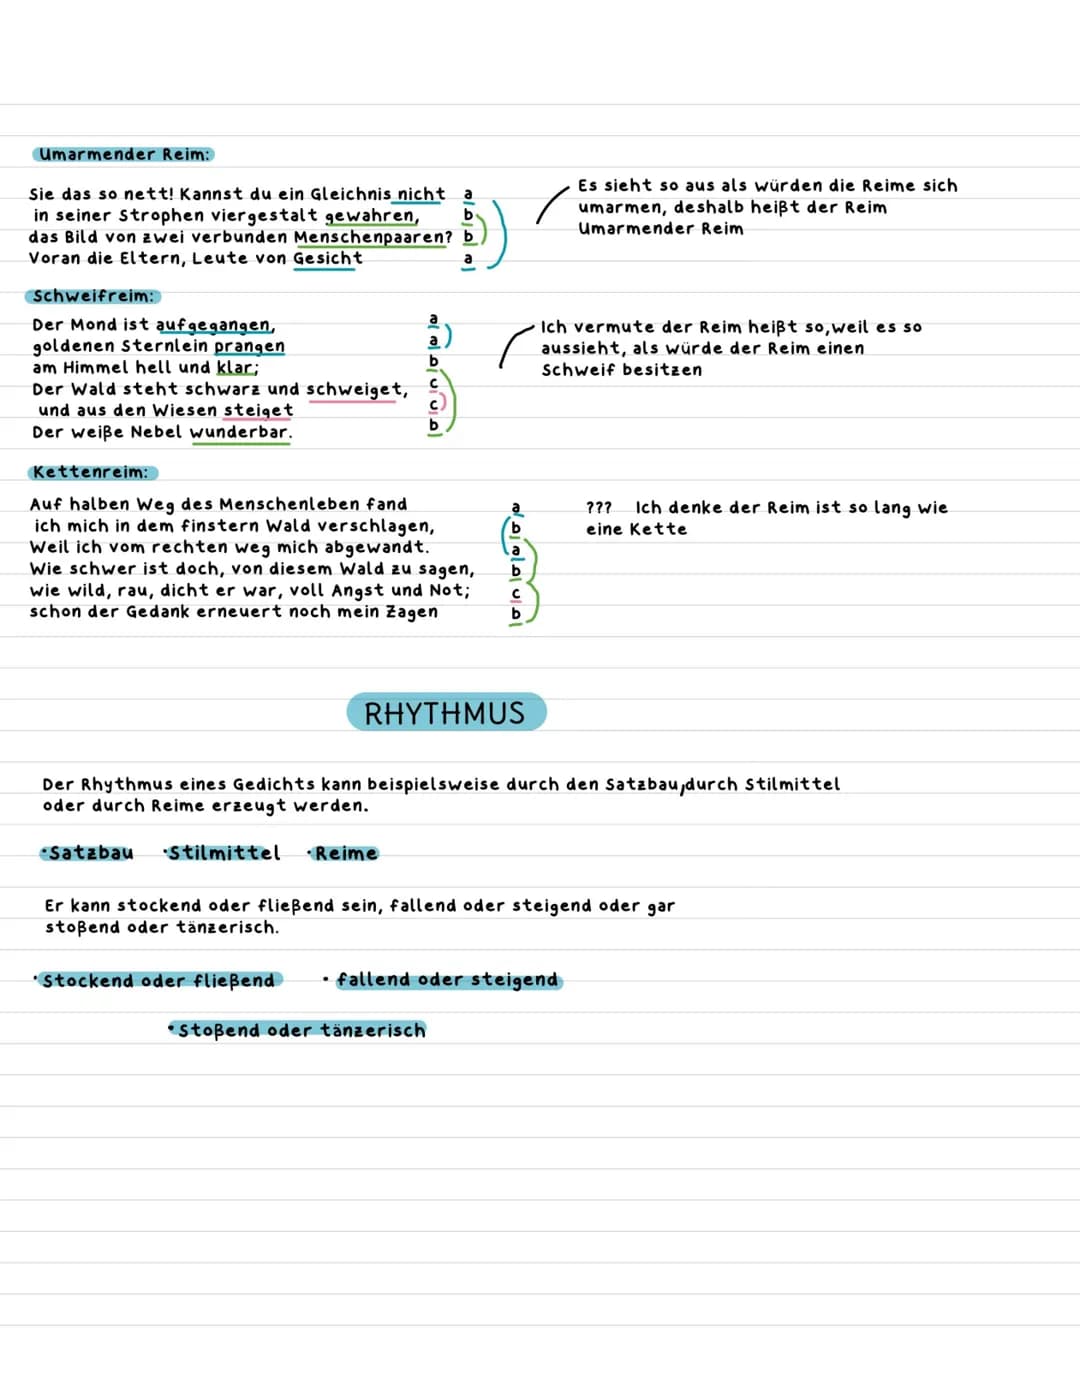 Umarmender Reim:
Sie das so nett! Kannst du ein Gleichnis nicht a
in seiner Strophen viergestalt gewahren, b
das Bild von zwei verbunden Menschenpaaren? b
Voran die Eltern, Leute von Gesicht a
Es sieht so aus als würden die Reime sich
umarmen, deshalb heißt der Reim
Umarmender Reim
Schweifreim:
Der Mond ist aufgegangen, a
goldenen Sternlein prangen a
am Himmel hell und klar; b
Der Wald steht schwarz und schweiget, c
und aus den Wiesen steiget c
Der weiße Nebel wunderbar. b
Ich vermute der Reim heißt so, weil es so
aussieht, als würde der Reim einen
Schweif besitzen
Kettenreim:
Auf halben Weg des Menschenleben fand a
ich mich in dem finstern Wald verschlagen, b
Weil ich vom rechten weg mich abgewandt. a
Wie schwer ist doch, von diesem Wald zu sagen, b
wie wild, rau, dicht er war, voll Angst und Not; c
schon der Gedank erneuert noch mein Zagen b
??? Ich denke der Reim ist so lang wie
eine Kette
RHYTHMUS
Der Rhythmus eines Gedichts kann beispielsweise durch den Satzbau, durch Stilmittel
oder durch Reime erzeugt werden.
•Satzbau •Stilmittel •Reime
Er kann stockend oder fließend sein, fallend oder steigend oder gar
stoßend oder tänzerisch.
•Stockend oder fließend • fallend oder steigend
•Stoßend oder tänzerisch